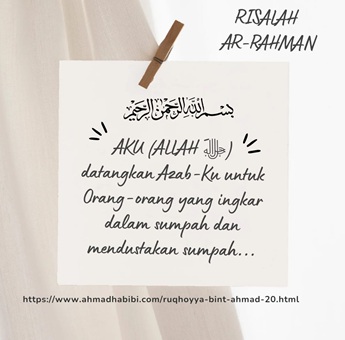 RISALAH
AR-RAHMAN
بسم الله الرحمن الرحيم
AKU (ALLAH ﷻ)
datangkan Azab-Ku untuk
Orang-orang yang ingkar
dalam sumpah dan
mendustakan sumpah...
https://www.ahmadhabibi.com/ruqhoyya-bint-ahmad-20.html